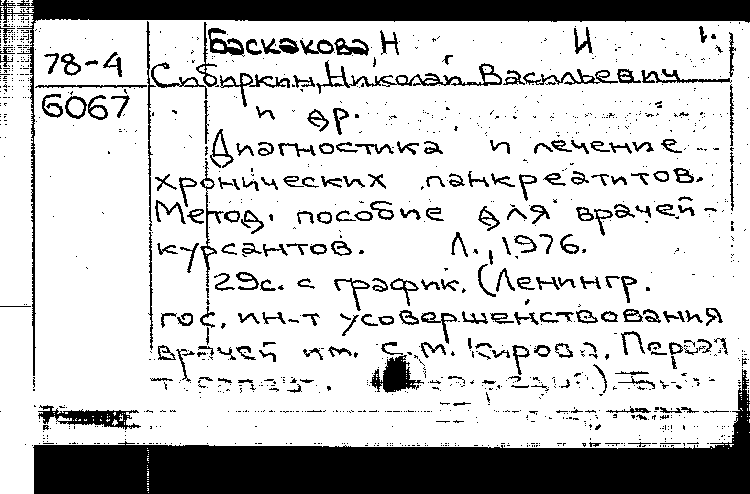 Баскакова, Н И
78-4 Сибиркин, Николай Васильевич
6067 и др.
Диагностика и лечение
хронических панкреатитов.
Метод. пособие для врачей-
курсантов. Л., 1976.
29с. с график. (Ленингр.
гос. ин-т усовершенствования
врачей им. С.М. Кирова. Первая
терапевт.